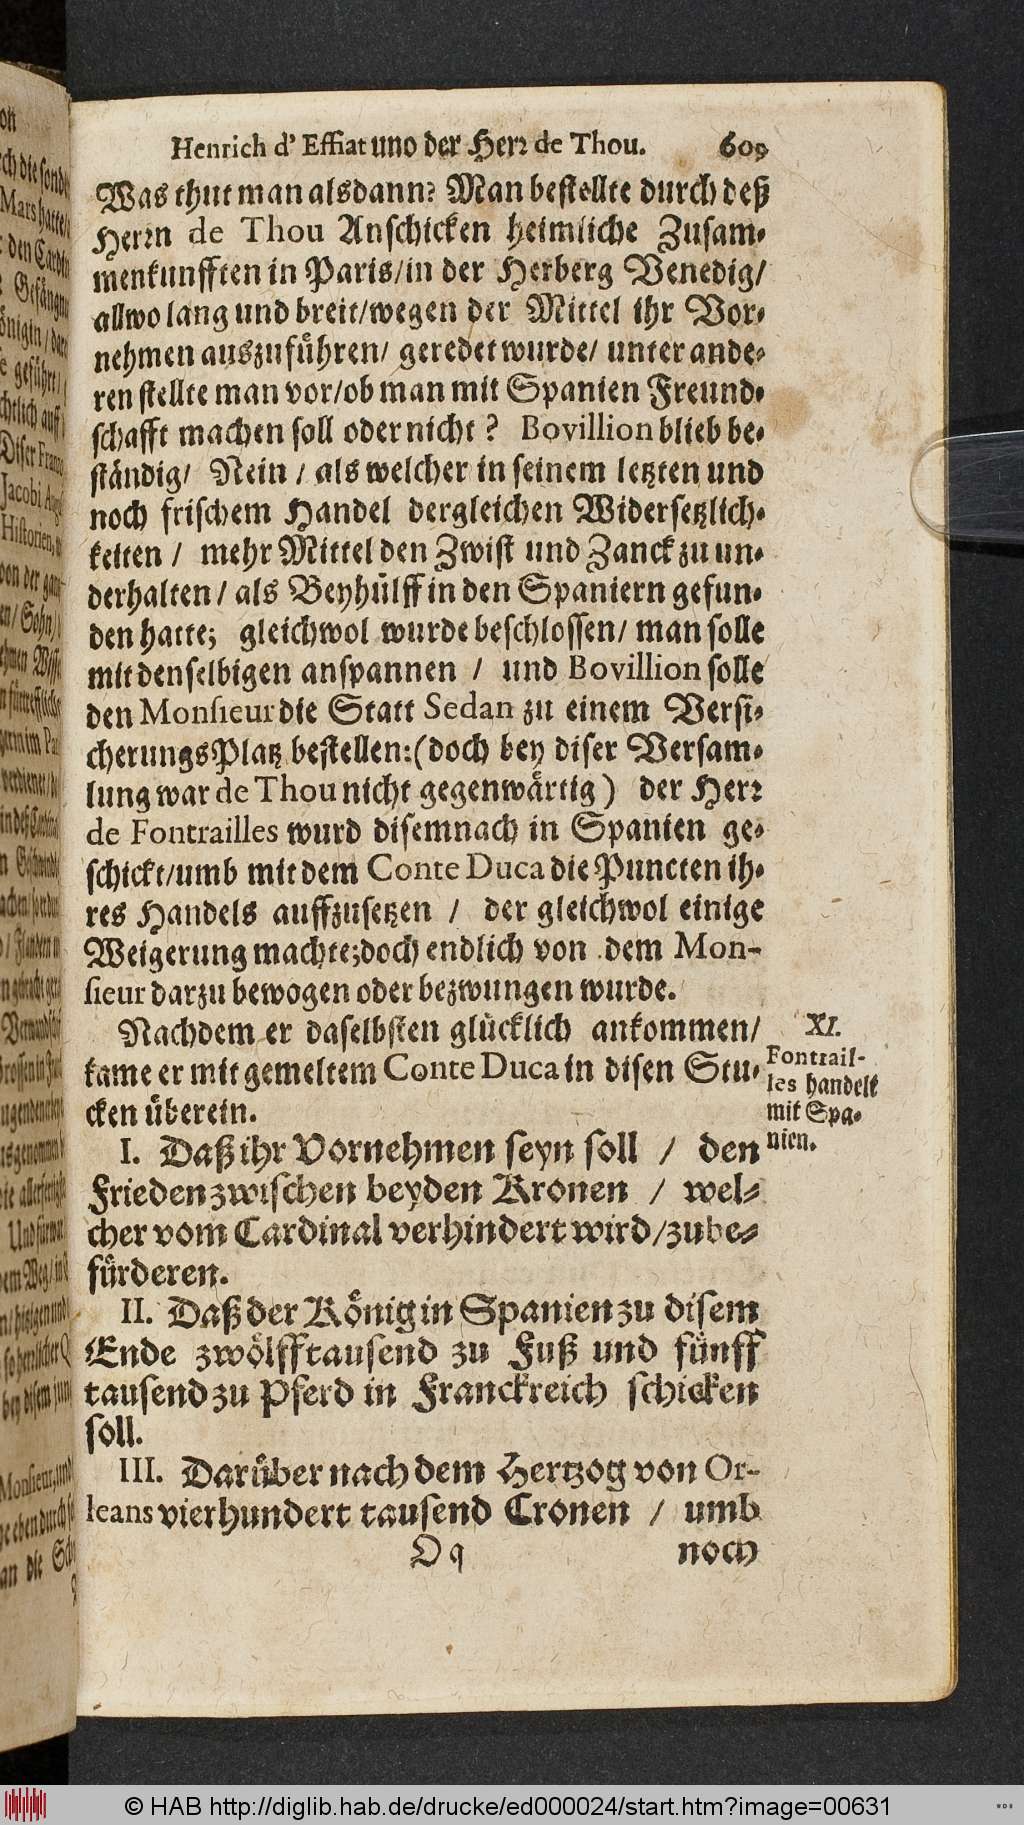 Henrich d' Effiat uno der Herr de Thou. 609
Was thut man alsdann? Man bestellte durch deß
Herrn de Thou Anschicken heimliche Zusam-
menkunfften in Paris/in der Herberg Venedig/
allwo lang und breit/wegen der Mittel ihr Vor-
nehmen auszuführen/ geredet wurde/ unter ande-
ren stellte man vor/ob man mit Spanien Freund-
schafft machen soll oder nicht? Bovillion blieb be-
ständig/ Nein / als welcher in seinem letzten und
noch frischem Handel dergleichen Widersetzlich-
keiten / mehr Mittel den Zwist und Zanck zu un-
derhalten / als Beyhülff in den Spaniern gefun-
den hatte; gleichwol wurde beschlossen/ man solle
mit denselbigen anspannen / und Bovillion solle
den Monsieur die Statt Sedan zu einem Versi-
cherungsPlatz bestellen:(doch bey diser Versam-
lung war de Thou nicht gegenwärtig) der Herr
de Fontrailles wurd disemnach in Spanien ge-
schickt/umb mit dem Conte Duca die Puncten ih-
res Handels auffzusetzen / der gleichwol einige
Weigerung machte;doch endlich von dem Mon-
sieur darzu bewogen oder bezwungen wurde.
Nachdem er daselbsten glücklich ankommen/
kame er mit gemeltem Conte Duca in disen Stu-
cken überein.
XI.
Fontrail-
les handelt
mit Spa-
nien.
I. Daß ihr Vornehmen seyn soll / den
Frieden zwischen beyden Kronen / wel-
cher vom Cardinal verhindert wird/zu be-
fürderen.
II. Daß der König in Spanien zu disem
Ende zwölfftausend zu Fuß und fünff
tausend zu Pferd in Franckreich schicken
soll.
III. Darüber nach dem Hertzog von Or-
leans vierhundert tausend Cronen / umb
Qq noch
© HAB http://diglib.hab.de/drucke/ed000024/start.htm?image=00631